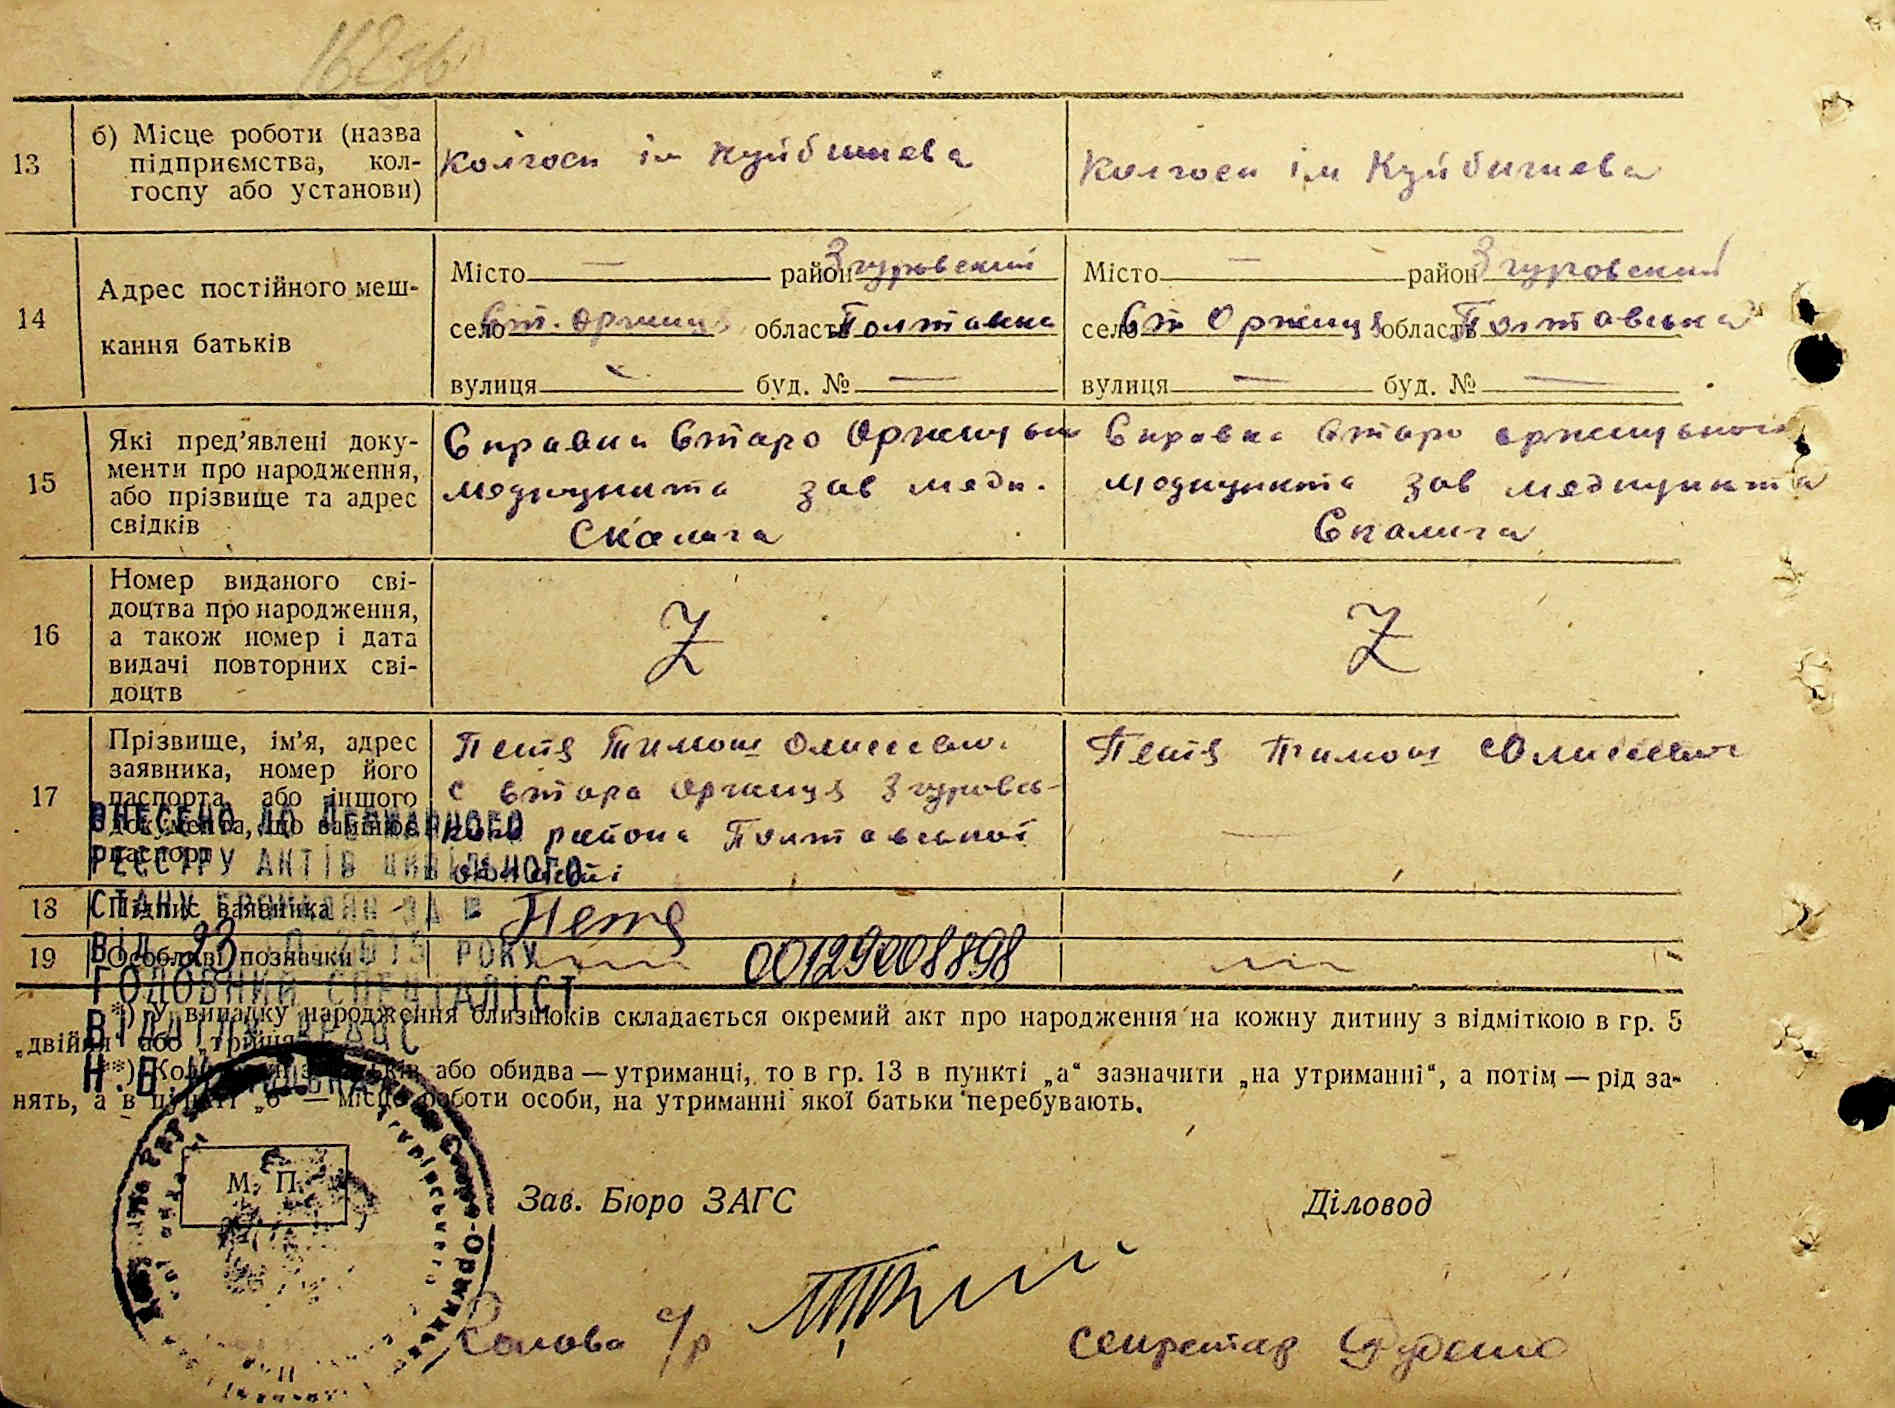 13
б) Місце роботи (назва
підприємства, кол-
госпу або установи)
Колгосп ім Куйбишева
Колгосп ім Куйбишева
14
Адрес постійного меш-
кання батьків
Місто — район Згуровский
село Ст. Оржиця область Полтавска
вулиця — буд. № —
Місто — район Згуровский
село Ст Оржиця область Полтавська
вулиця — буд. № —
15
Які пред’явлені доку-
менти про народження,
або прізвище та адрес
свідків
Справка Старо Оржицьк
медпункта зав медп.
Скалига
Справка Старо оржицького
медпункта зав медпункта
Скалига
16
Номер виданого сві-
доцтва про народження,
а також номер і дата
видачі повторних сві-
доцтв
Z
Z
17
Прізвище, ім’я, адрес
заявника, номер його
паспорта, або іншого
документа, що замінює
паспорт
Петя Тимош
с Стара Оржиця Згуровсь-
кого района Полтавської
області
Петя Тимош
ВНЕСЕНО ДО ДЕРЖАВНОГО
РЕЄСТРУ АКТІВ ЦИВІЛЬНОГО
СТАНУ ГРОМАДЯН ЗА №
ВІД 23 10 2015 РОКУ
ГОЛОВНИЙ СПЕЦІАЛІСТ
ВІДДІЛУ ДРАЦС
18
Підпис заявника
Петя
19
Особливі позначки
00129008898
*) У випадку народження близнюків складається окремий акт про народження на кожну дитину з відміткою в гр. 5
„двійня“ або „трійня“
**) Коли один з батьків або обидва — утриманці, то в гр. 13 в пункті „а“ зазначити „на утриманні“, а потім — рід за-
нять, а в пункті „б“ — місце роботи особи, на утриманні якої батьки перебувають.
М. П.
Зав. Бюро ЗАГС
Діловод
Голова с/р
секретар